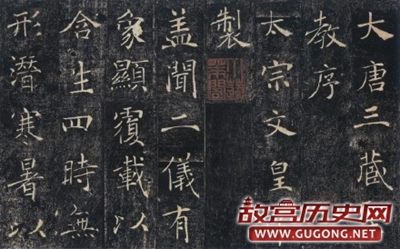 大唐三藏
教序
太宗文皇
製
盖聞二儀有
象顯覆載以
含生四時無
形潛寒暑以
故宫历史网
WWW.GUGONG.NET